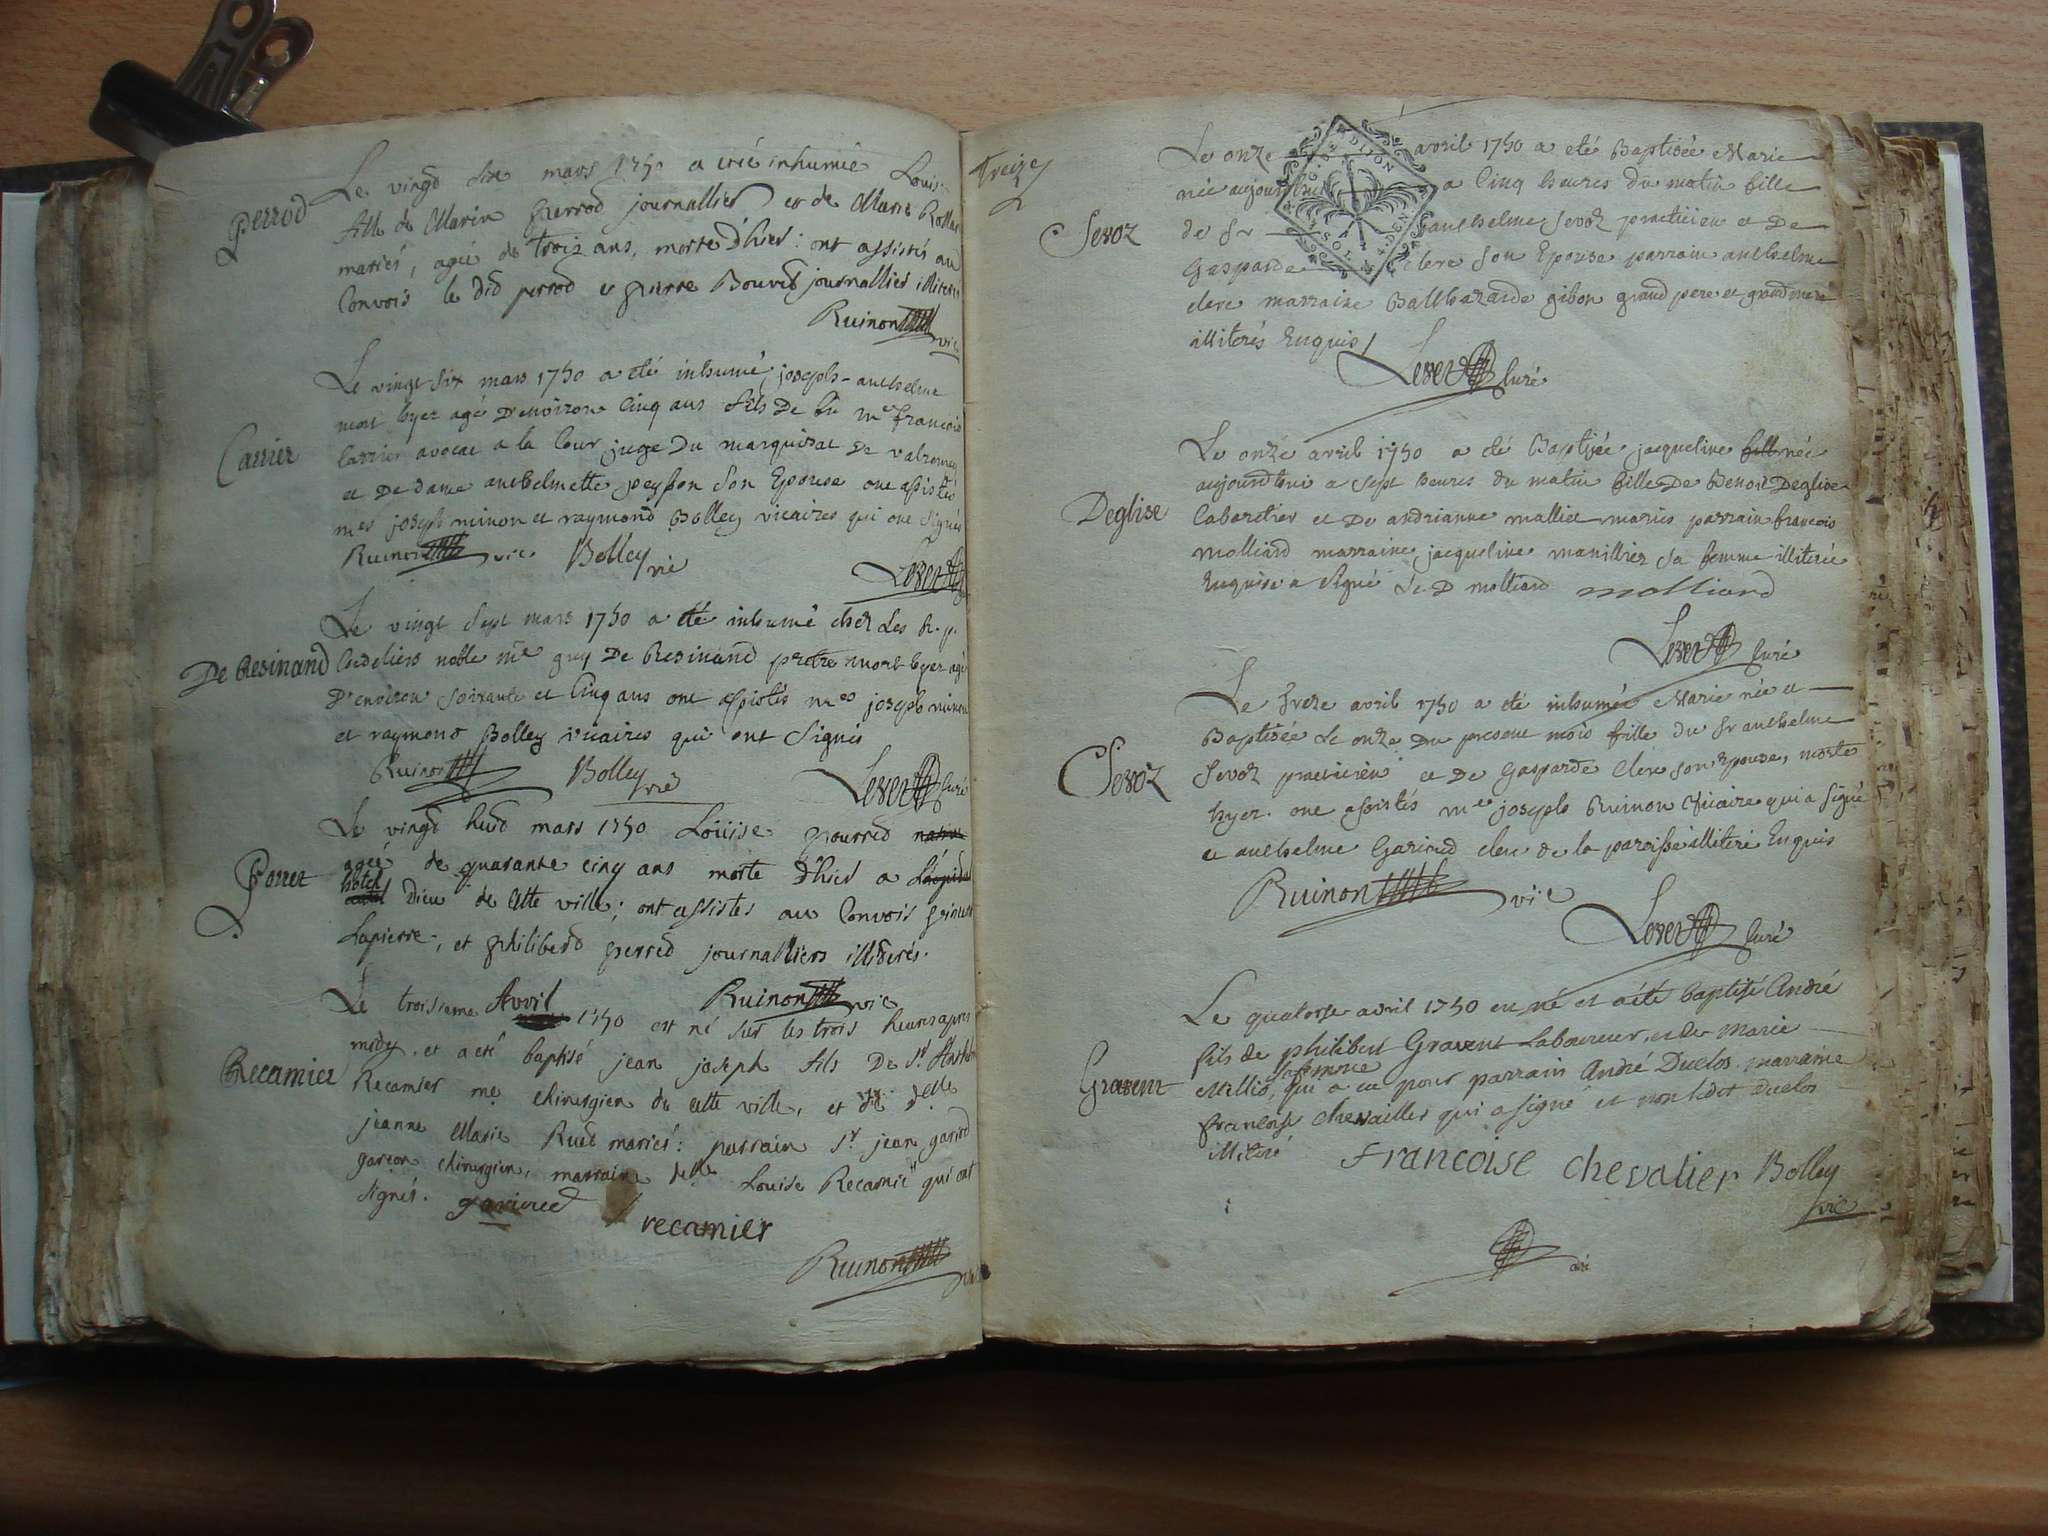 Perrod
Le vingt six mars 1750 a eté inhumée Louise
fille de Marin perrod journallier et de Marie
mariés, agée de trois ans, morte d'hier: ont assistés au
Convois le dit perrod et pierre Bouvet journallies illiterés
Ruinon vic
Carrier
Le vingt six mars 1750 a eté inhumé joseph-anthelme
mort hyer agé d'environ Cinq ans fils De feu me françois
Carrier avocat a la Cour juge Du marquisat De valromey
et De dame anthelmette peysson Son Epouse ont assistés
mes joseph ruinon et raymond Bolley vicaires qui ont Signés
Ruinon vic Bolley vic
Lever
De Resinand
Le vingt Sept mars 1750 a eté inhumé chez Les R. p.
Cordeliers noble me guy De Resinand pretre mort hyer agé
D'environ Soixante et Cinq ans ont assistés mes joseph ruinon
et raymond Bolley vicaires qui ont Signés
Ruinon Bolley vic Lever Curé
Porret
Le vingt huit mars 1750 Louise pourred
ageé de quarante cinq ans morte d'hier a
hotel Dieu de Cette ville; ont assistés au Convois
Lapierre, et philiberd perred journalliers illiterés.
Ruinon vic
Recamier
Le troisieme Avril 1750 est né sur les trois heures apres
midy. et a eté baptisé jean joseph fils De Sr Anthelme
Recamier me chirurgien de Cette ville, et de delle
jeanne Marie Rued mariés: parrain Sr jean garriod
garçon chirurgien, marraine delle Louise Recamier qui ont
signés. garioud
recamier
Ruinon
Treize
Sevoz
Le onze avril 1750 a eté Baptisée Marie
née aujourdhui a Cinq heures du matin fille
de Sr anthelme Sevoz practicien et De
Gasparde clerc Son Epouse parrain anthelme
clerc marraine Balthazarde gibon grand pere et grand mere
illiterés Enquis
Lever Curé
Deglise
Le onze avril 1750 a eté Baptisée jacqueline née
aujourdhui a Sept heures du matin fille De Benoit Deglise
Cabaretier et De andrianne malliet mariés parrain françois
molliard marraine jacqueline manillier Sa femme illiterée
Enquise a Signé Le D molliard molliard
Lever Curé
Sevoz
Le treze avril 1750 a eté inhumée Marie née et
Baptisée Le onze Du present mois fille du Sr anthelme
Sevoz praticien et De Gasparde Clerc son Epouse, morte
hyer. ont assistés me joseph Ruinon Vicaire qui a Signé
et anthelme Garioud clerc de la paroisse illiteré Enquis
Ruinon vic
Lever Curé
Gravent
Le quatorse avril 1750 est né et a été baptisé André
fils de philibert Gravent Laboureur, et de Marie
Millet, sa femme qui a eu pour parrain André Duclos. marraine
francoise chevallier qui a signé et non ledit Duclos
illiteré
Francoise chevalier Bolley
vic